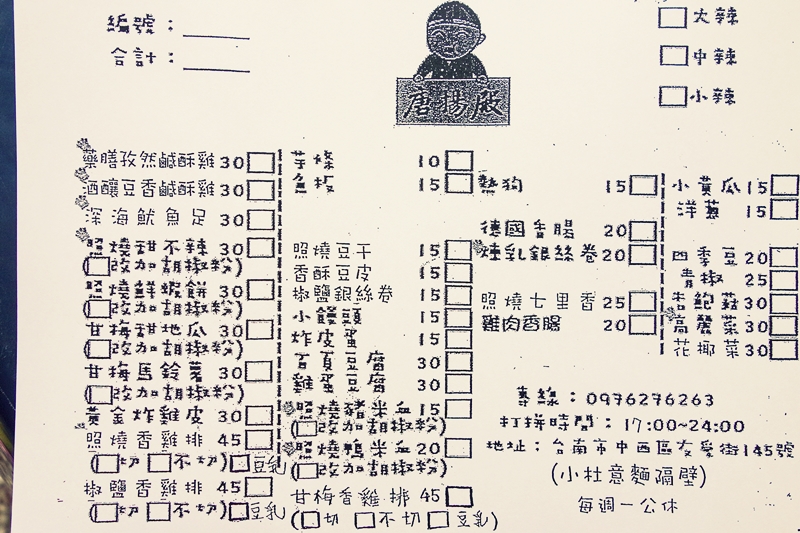 編號：
合計：
唐揚殿
大辣
中辣
小辣
藥膳孜然鹹酥雞 30
酒釀豆香鹹酥雞 30
深海魷魚足 30
照燒甜不辣 30
(改加胡椒粉)
照燒鮮蝦餅 30
(改加胡椒粉)
甘梅甜地瓜 30
(改加胡椒粉)
甘梅馬鈴薯 30
(改加胡椒粉)
黃金炸雞皮 30
照燒香雞排 45
(切 不切) 豆乳
椒鹽香雞排 45
(切 不切) 豆乳
芋條 10
魚板 15
照燒豆干 15
香酥豆皮 15
椒鹽銀絲卷 15
小饅頭 15
炸皮蛋 15
百頁豆腐 30
雞蛋豆腐 30
照燒豬米血 15
(改加胡椒粉)
照燒鴨米血 20
(改加胡椒粉)
甘梅香雞排 45
(切 不切 豆乳)
熱狗 15
德國香腸 20
煉乳銀絲卷 20
照燒七里香 25
雞肉香腸 20
小黃瓜 15
洋蔥 15
四季豆 20
青椒 25
杏鮑菇 30
高麗菜 30
花椰菜 30
專線：0976276263
打拼時間：17:00~24:00
地址：台南市中西區友愛街145號
(小杜意麵隔壁)
每週一公休